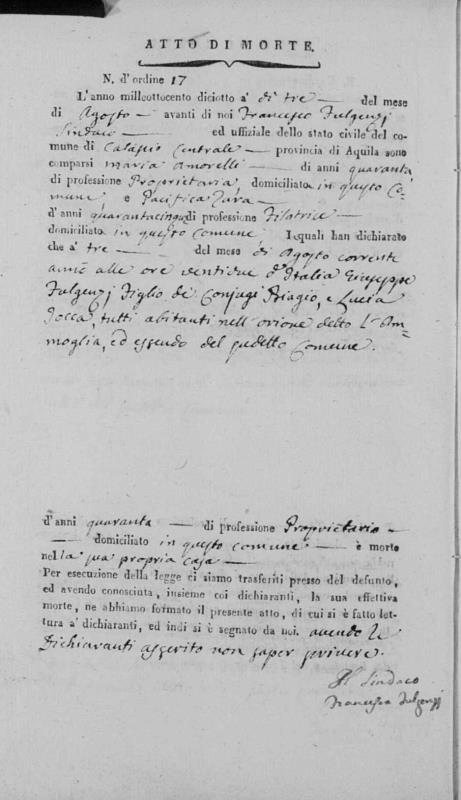 ATTO DI MORTE.
N. d'ordine 17
L'anno milleottocento diciotto a' di tre — del mese
di Agosto — avanti di noi Francesco Fulgenzj
Sindaco — ed uffiziale dello stato civile del co-
mune di Calascio Centrale — provincia di Aquila sono
comparsi maria Amorelli — di anni quaranta
di professione Proprietaria, domiciliato in questo Co-
mune, e Pacifica — 
d'anni quarantacinque di professione Filatrice —
domiciliato in questo comune, I quali han dichiarato
che a' tre — del mese di Agosto corrente
anno alle ore ventidue d'Italia Giuseppe
Fulgenzj Figlio dei Conjugi Biagio, e Lucia
tutti abitanti nell'orione detto
ed essendo del sudetto Comune.
d'anni quaranta — di professione Proprietario —
— domiciliato in questo comune — è morto
nella sua propria casa —
Per esecuzione della legge ci siamo trasferiti presso del defunto,
ed avendo conosciuta, insieme coi dichiaranti, la sua effettiva
morte, ne abbiamo formato il presente atto, di cui si è fatto let-
tura a' dichiaranti, ed indi si è segnato da noi. avendo le
Dichiaranti asserito non saper scrivere.
Il Sindaco
Francesco Fulgenzj